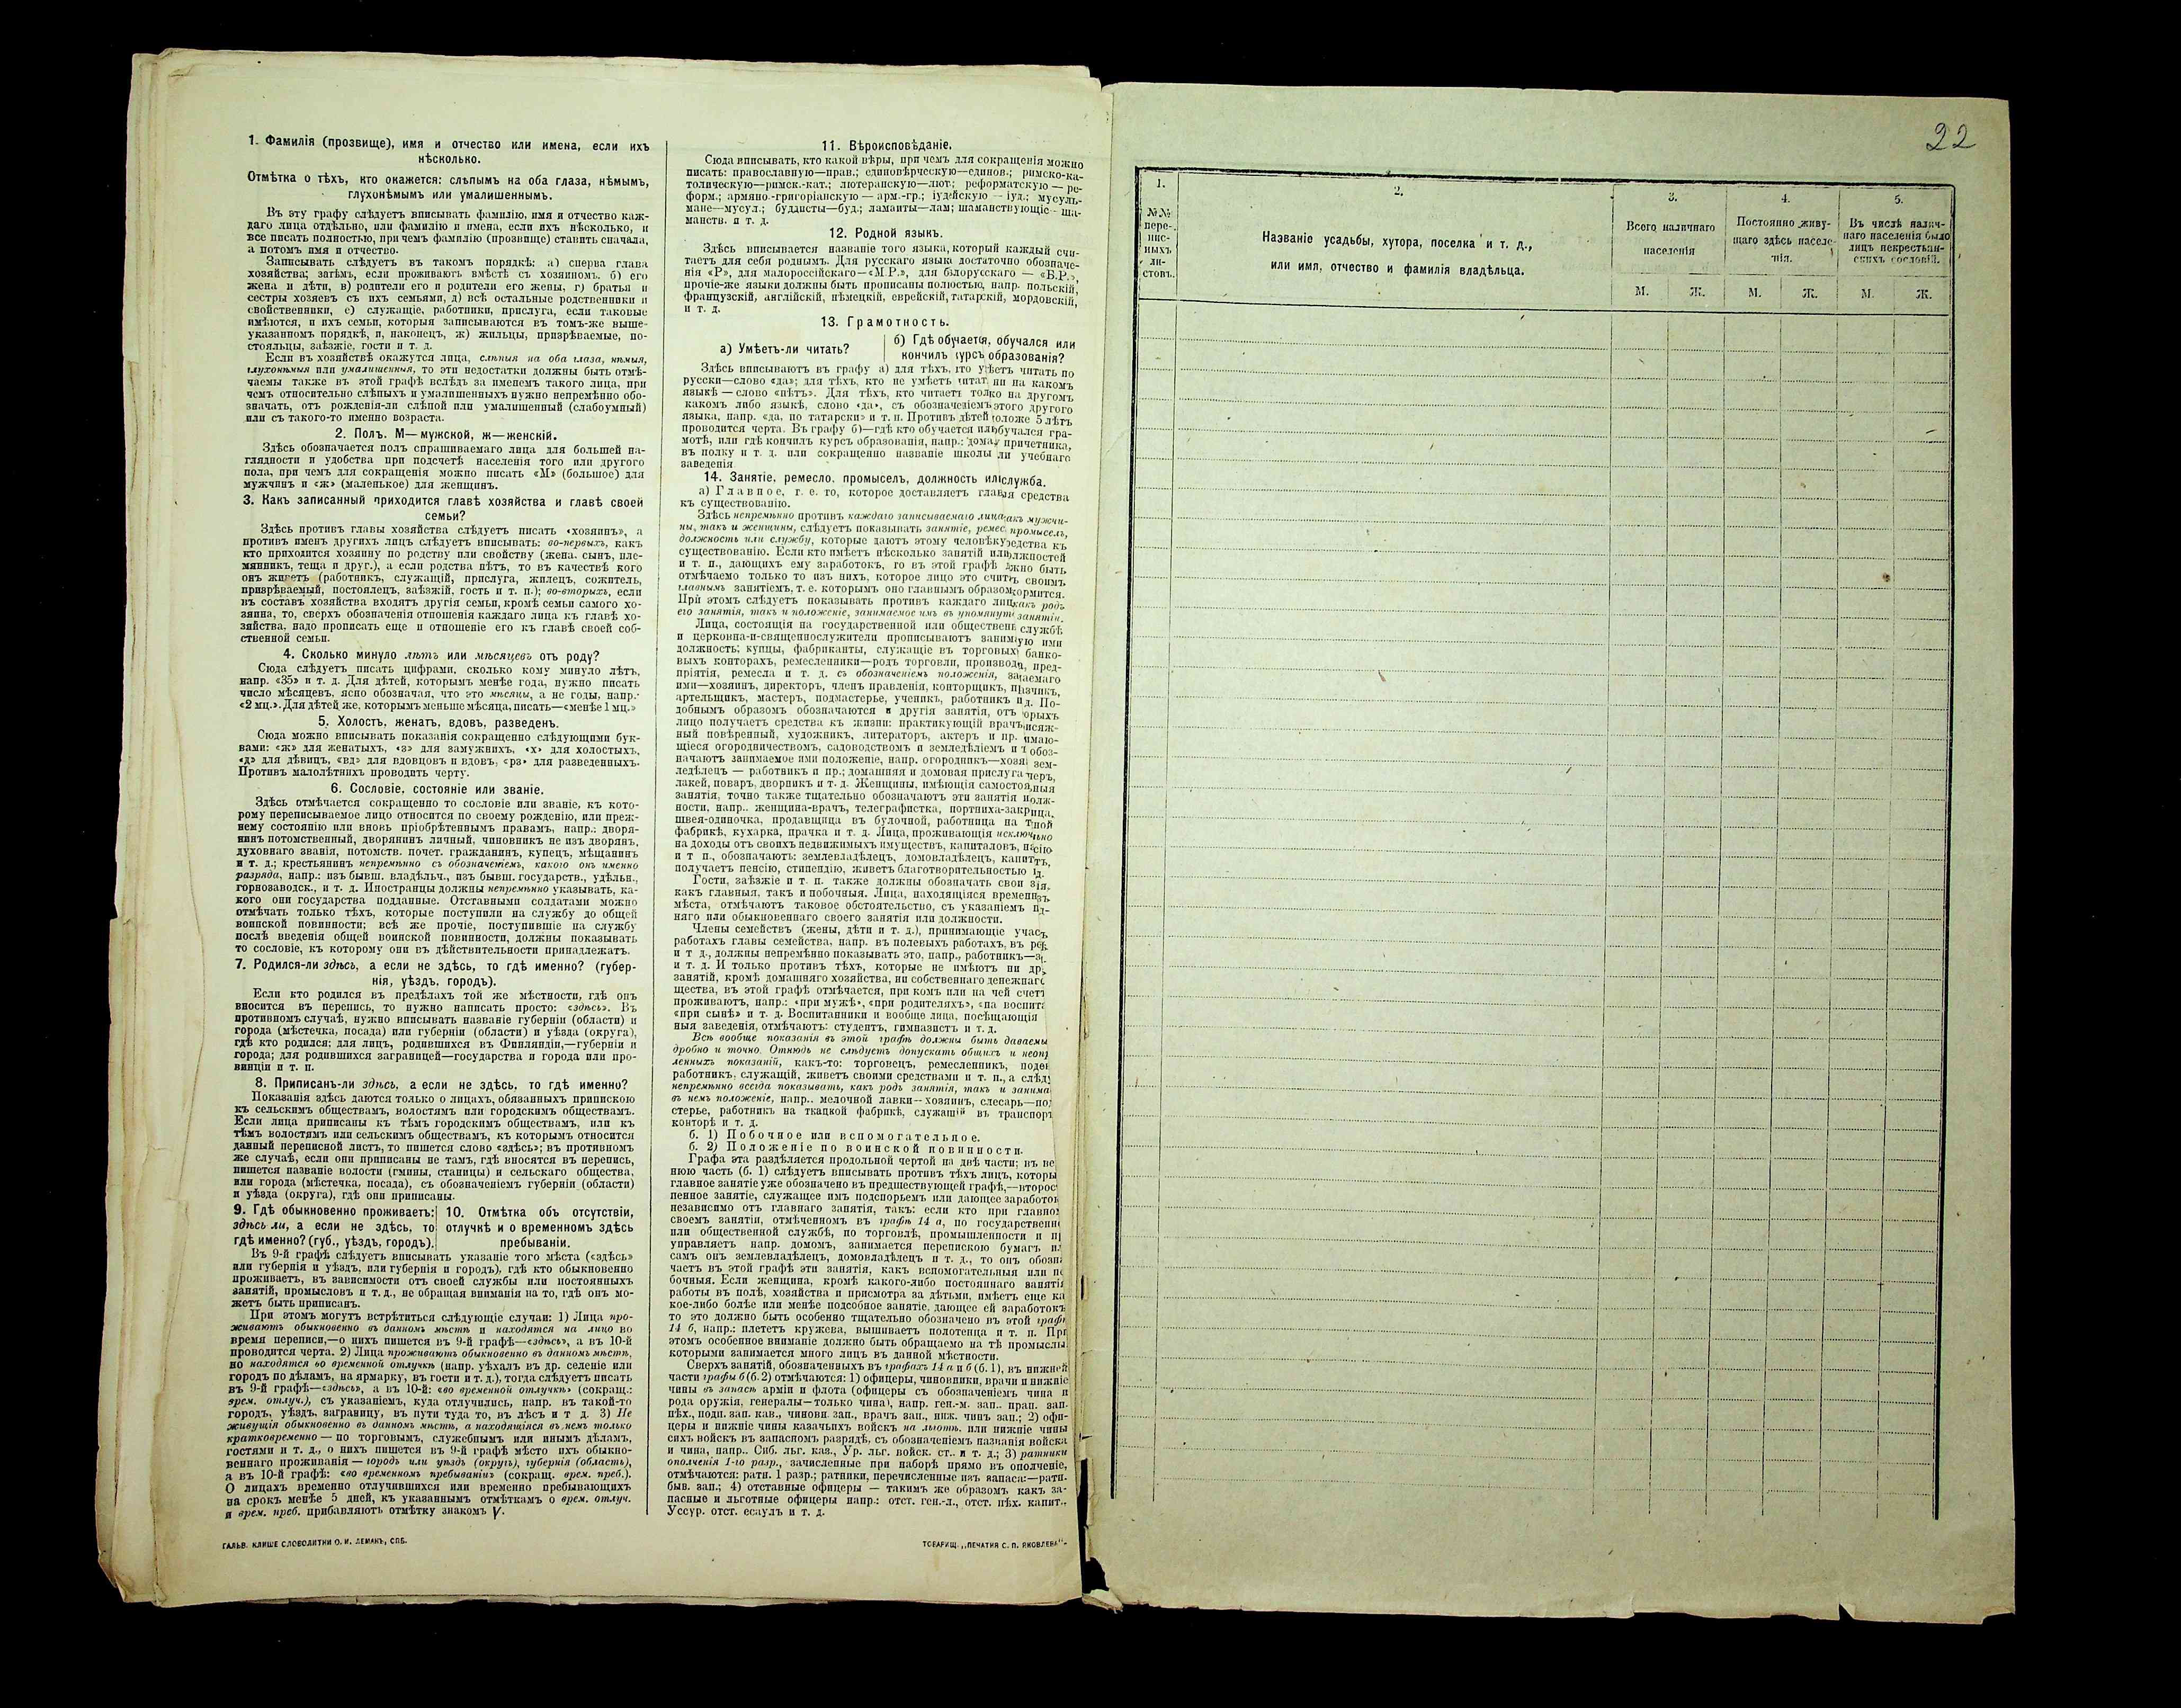 1. Фамилія (прозвище), имя и отчество или имена, если ихъ
нѣсколько.
Отмѣтка о тѣхъ, кто окажется: слѣпымъ на оба глаза, нѣмымъ,
глухонѣмымъ или умалишеннымъ.
Въ эту графу слѣдуетъ вписывать фамилію, имя и отчество каж-
даго лица отдѣльно, или фамилію и имена, если ихъ нѣсколько, и
все писать полностью, при чемъ фамилію (прозвище) ставить сначала,
а потомъ имя и отчество.
Записывать слѣдуетъ въ такомъ порядкѣ: а) сперва глава
хозяйства; затѣмъ, если проживаютъ вмѣстѣ съ хозяиномъ, б) его
жена и дѣти, в) родители его и родители его жены, г) братья и
сестры хозяевъ съ ихъ семьями, д) всѣ остальные родственники и
свойственники, е) служащіе, работники, прислуга, если таковые
имѣются, и ихъ семьи, которыя записываются въ томъ-же выше-
указанномъ порядкѣ, и, наконецъ, ж) жильцы, призрѣваемые, по-
стояльцы, заѣзжіе, гости и т. д.
Если въ хозяйствѣ окажутся лица, слѣпыя на оба глаза, нѣмыя,
глухонѣмыя или умалишенныя, то эти недостатки должны быть отмѣ-
чаемы также въ этой графѣ вслѣдъ за именемъ такого лица, при
чемъ относительно слѣпыхъ и умалишенныхъ нужно непремѣнно обо-
значать, отъ рожденія-ли слѣпой или умалишенный (слабоумный)
или съ такого-то именно возраста.
2. Полъ. М—мужской, ж—женскій.
Здѣсь обозначается полъ спрашиваемаго лица для большей на-
глядности и удобства при подсчетѣ населенія того или другого
пола, при чемъ для сокращенія можно писать «М» (большое) для
мужчинъ и «ж» (маленькое) для женщинъ.
3. Какъ записанный приходится главѣ хозяйства и главѣ своей
семьи?
Здѣсь противъ главы хозяйства слѣдуетъ писать «хозяинъ», а
противъ именъ другихъ лицъ слѣдуетъ вписывать: во-первыхъ, какъ
кто приходится хозяину по родству или свойству (жена, сынъ, пле-
мянникъ, теща и друг.), а если родства нѣтъ, то въ качествѣ кого
онъ живетъ (работникъ, служащій, прислуга, жилецъ, сожитель,
призрѣваемый, постоялецъ, заѣзжій, гость и т. п.); во-вторыхъ, если
въ составъ хозяйства входятъ другія семьи, кромѣ семьи самого хо-
зяина, то, сверхъ обозначенія отношенія каждаго лица къ главѣ хо-
зяйства, надо прописать еще и отношеніе его къ главѣ своей соб-
ственной семьи.
4. Сколько минуло лѣтъ или мѣсяцевъ отъ роду?
Сюда слѣдуетъ писать цифрами, сколько кому минуло лѣтъ,
напр. «35» и т. д. Для дѣтей, которымъ менѣе года, нужно писать
число мѣсяцевъ, ясно обозначая, что это мѣсяцы, а не годы, напр.
«2 мц.». Для дѣтей же, которымъ меньше мѣсяца, писать—«менѣе 1 мц.»
5. Холостъ, женатъ, вдовъ, разведенъ.
Сюда можно вписывать показанія сокращенно слѣдующими бук-
вами: «ж» для женатыхъ, «з» для замужнихъ, «х» для холостыхъ,
«д» для дѣвицъ, «вд» для вдовцовъ и вдовъ, «рз» для разведенныхъ.
Противъ малолѣтнихъ проводить черту.
6. Сословіе, состояніе или званіе.
Здѣсь отмѣчается сокращенно то сословіе или званіе, къ кото-
рому переписываемое лицо относится по своему рожденію, или преж-
нему состоянію или вновь пріобрѣтеннымъ правамъ, напр.: дворя-
нинъ потомственный, дворянинъ личный, чиновникъ не изъ дворянъ,
духовнаго званія, потомств. почет. гражданинъ, купецъ, мѣщанинъ
и т. д.; крестьянинъ непремѣнно съ обозначеніемъ, какого онъ именно
разряда, напр.: изъ бывш. владѣльч., изъ бывш. государств., удѣльн.,
горнозаводск., и т. д. Иностранцы должны непремѣнно указывать, ка-
кого они государства подданные. Отставными солдатами можно
отмѣчать только тѣхъ, которые поступили на службу до общей
воинской повинности; всѣ же прочіе, поступившіе на службу
послѣ введенія общей воинской повинности, должны показывать
то сословіе, къ которому они въ дѣйствительности принадлежатъ.
7. Родился-ли здѣсь, а если не здѣсь, то гдѣ именно? (губер-
нія, уѣздъ, городъ).
Если кто родился въ предѣлахъ той же мѣстности, гдѣ онъ
вносится въ перепись, то нужно написать просто: «здѣсь». Въ
противномъ случаѣ, нужно вписывать названіе губерніи (области) и
города (мѣстечка, посада) или губерніи (области) и уѣзда (округа),
гдѣ кто родился; для лицъ, родившихся въ Финляндіи,—губерніи и
города; для родившихся заграницей—государства и города или про-
винціи и т. п.
8. Приписанъ-ли здѣсь, а если не здѣсь, то гдѣ именно?
Показанія здѣсь даются только о лицахъ, обязанныхъ припискою
къ сельскимъ обществамъ, волостямъ или городскимъ обществамъ.
Если лица приписаны къ тѣмъ городскимъ обществамъ, или къ
тѣмъ волостямъ или сельскимъ обществамъ, къ которымъ относится
данный переписной листъ, то пишется слово «здѣсь»; въ противномъ
же случаѣ, если они приписаны не тамъ, гдѣ вносятся въ перепись,
пишется названіе волости (гмины, станицы) и сельскаго общества,
или города (мѣстечка, посада), съ обозначеніемъ губерніи (области)
и уѣзда (округа), гдѣ они приписаны.
9. Гдѣ обыкновенно проживаетъ:
здѣсь ли, а если не здѣсь, то
гдѣ именно? (губ., уѣздъ, городъ).
10. Отмѣтка объ отсутствіи,
отлучкѣ и о временномъ здѣсь
пребываніи.
Въ 9-й графѣ слѣдуетъ вписывать указаніе того мѣста («здѣсь»
или губернія и уѣздъ, или губернія и городъ), гдѣ кто обыкновенно
проживаетъ, въ зависимости отъ своей службы или постоянныхъ
занятій, промысловъ и т. д., не обращая вниманія на то, гдѣ онъ мо-
жетъ быть приписанъ.
При этомъ могутъ встрѣтиться слѣдующіе случаи: 1) Лица про-
живаютъ обыкновенно въ данномъ мѣстѣ и находятся на лицо во
время переписи,—о нихъ пишется въ 9-й графѣ—«здѣсь», а въ 10-й
проводится черта. 2) Лица проживаютъ обыкновенно въ данномъ мѣстѣ,
но находятся во временной отлучкѣ (напр. уѣхалъ въ др. селеніе или
городъ по дѣламъ, на ярмарку, въ гости и т. д.), тогда слѣдуетъ писать
въ 9-й графѣ—«здѣсь», а въ 10-й: «во временной отлучкѣ» (сокращ.:
врем. отлуч.), съ указаніемъ, куда отлучились, напр. въ такой-то
городъ, уѣздъ, заграницу, въ пути туда то, въ лѣсъ и т д. 3) Не
живущія обыкновенно въ данномъ мѣстѣ, а находящіяся въ немъ только
кратковременно — по торговымъ, служебнымъ или инымъ дѣламъ,
гостями и т. д., о нихъ пишется въ 9-й графѣ мѣсто ихъ обыкно-
веннаго проживанія — городъ или уѣздъ (округъ), губернія (область),
а въ 10-й графѣ: «во временномъ пребываніи» (сокращ. врем. преб.).
О лицахъ временно отлучившихся или временно пребывающихъ
на срокъ менѣе 5 дней, къ указаннымъ отмѣткамъ о врем. отлуч.
и врем. преб. прибавляютъ отмѣтку знакомъ V.
ГАЛЬВ. КЛИШЕ СЛОВОЛИТНИ О. И. ЛЕМАНЪ, СПБ.
11. Вѣроисповѣданіе.
Сюда вписывать, кто какой вѣры, при чемъ для сокращенія можно
писать: православную—прав.; единовѣрческую—единов.; римско-ка-
толическую—римск.-кат.; лютеранскую—лют.; реформатскую — ре-
форм.; армяно.-григоріанскую — арм.-гр.; іудейскую — іуд.; мусуль-
мане—мусул.; буддисты—буд.; ламаиты—лам; шаманствующіе — ша-
манств. и т. д.
12. Родной языкъ.
Здѣсь вписывается названіе того языка, который каждый счи-
таетъ для себя роднымъ. Для русскаго языка достаточно обозначе-
нія «Р», для малороссійскаго—«М.Р.», для бѣлорусскаго — «Б.Р.»,
прочіе-же языки должны быть прописаны полностью, напр. польскій,
французскій, англійскій, нѣмецкій, еврейскій, татарскій, мордовскій,
и т. д.
13. Грамотность.
а) Умѣетъ-ли читать?
б) Гдѣ обучается, обучался или
кончилъ курсъ образованія?
Здѣсь вписываютъ въ графу а) для тѣхъ, кто умѣетъ читать по
русски—слово «да»; для тѣхъ, кто не умѣетъ читать ни на какомъ
языкѣ — слово «нѣтъ». Для тѣхъ, кто читаетъ только на другомъ
какомъ либо языкѣ, слово «да», съ обозначеніемъ этого другого
языка, напр. «да, по татарски» и т. п. Противъ дѣтей моложе 5 лѣтъ
проводится черта. Въ графу б)—гдѣ кто обучается или обучался гра-
мотѣ, или гдѣ кончилъ курсъ образованія, напр.: дома, у причетника,
въ полку и т. д. или сокращенно названіе школы или учебнаго
заведенія
14. Занятіе, ремесло, промыселъ, должность или служба.
а) Главное, т. е. то, которое доставляетъ главныя средства
къ существованію.
Здѣсь непремѣнно противъ каждаго записываемаго лица, какъ мужчи-
ны, такъ и женщины, слѣдуетъ показывать занятіе, ремесло, промыселъ,
должность или службу, которые даютъ этому человѣку средства къ
существованію. Если кто имѣетъ нѣсколько занятій или должностей
и т. п., дающихъ ему заработокъ, то въ этой графѣ должно быть
отмѣчаемо только то изъ нихъ, которое лицо это считаетъ своимъ
главнымъ занятіемъ, т. е. которымъ оно главнымъ образомъ кормится.
При этомъ слѣдуетъ показывать противъ каждаго лица какъ родъ
его занятія, такъ и положеніе, занимаемое имъ въ упомянутомъ занятіи.
Лица, состоящія на государственной или общественной службѣ
и церковно-и-священнослужители прописываютъ занимаемую ими
должность; купцы, фабриканты, служащіе въ торговыхъ банко-
выхъ конторахъ, ремесленники—родъ торговли, производства, пред-
пріятія, ремесла и т. д. съ обозначеніемъ положенія, занимаемаго
ими—хозяинъ, директоръ, членъ правленія, конторщикъ, приказчикъ,
артельщикъ, мастеръ, подмастерье, ученикъ, работникъ и т. д. По-
добнымъ образомъ обозначаются и другія занятія, отъ которыхъ
лицо получаетъ средства къ жизни: практикующій врачъ, присяж-
ный повѣренный, художникъ, литераторъ, актеръ и пр.
щіеся огородничествомъ, садоводствомъ и земледѣліемъ и т обоз-
начаютъ занимаемое ими положеніе, напр. огородникъ—хозя зем-
ледѣлецъ — работникъ и пр.; домашняя и домовая прислуга
лакей, поваръ, дворникъ и т. д. Женщины, имѣющія самостоятельныя
занятія, точно также тщательно обозначаютъ эти занятія и долж-
ности, напр.. женщина-врачъ, телеграфистка, портниха-закройщица,
швея-одиночка, продавщица въ булочной, работница на
фабрикѣ, кухарка, прачка и т. д. Лица, проживающія исключительно
на доходы отъ своихъ недвижимыхъ имуществъ, капиталовъ, пенсію
и т п., обозначаютъ: землевладѣлецъ, домовладѣлецъ,
получаетъ пенсію, стипендію, живетъ благотворительностью
Гости, заѣзжіе и т. п. также должны обозначать свои
какъ главныя, такъ и побочныя. Лица, находящіяся
мѣста, отмѣчаютъ таковое обстоятельство, съ указаніемъ
няго или обыкновеннаго своего занятія или должности.
Члены семействъ (жены, дѣти и т. д.), принимающіе
работахъ главы семейства, напр. въ полевыхъ работахъ, въ
и т д., должны непремѣнно показывать это, напр., работникъ—
и т. д. И только противъ тѣхъ, которые не имѣютъ ни
занятій, кромѣ домашняго хозяйства, ни собственнаго
щества, въ этой графѣ отмѣчается, при комъ или на чей
проживаютъ, напр.: «при мужѣ», «при родителяхъ», «на
«при сынѣ» и т. д. Воспитанники и вообще лица, посѣщающія
ныя заведенія, отмѣчаютъ: студентъ, гимназистъ и т. д.
Всѣ вообще показанія въ этой графѣ должны быть даваемы
дробно и точно. Отнюдь не слѣдуетъ допускать общихъ и
ленныхъ показаній, какъ-то: торговецъ, ремесленникъ,
работникъ, служащій, живетъ своими средствами и т. п., а
непремѣнно всегда показывать, какъ родъ занятія, такъ и
въ немъ положеніе, напр.. мелочной лавки—хозяинъ, слесарь—
стерье, работникъ на ткацкой фабрикѣ, служащій въ
конторѣ и т. д.
б. 1) Побочное или вспомогательное.
б. 2) Положеніе по воинской повинности.
Графа эта раздѣляется продольной чертой на двѣ части; въ
нюю часть (б. 1) слѣдуетъ вписывать противъ тѣхъ лицъ,
главное занятіе уже обозначено въ предшествующей графѣ,—
пенное занятіе, служащее имъ подспорьемъ или дающее
независимо отъ главнаго занятія, такъ: если кто при
своемъ занятіи, отмѣченномъ въ графѣ 14 а, по
или общественной службѣ, по торговлѣ, промышленности и
управляетъ напр. домомъ, занимается перепискою бумагъ
самъ онъ землевладѣлецъ, домовладѣлецъ и т. д., то онъ
чаетъ въ этой графѣ эти занятія, какъ вспомогательныя или
бочныя. Если женщина, кромѣ какого-либо постояннаго занятія
работы въ полѣ, хозяйства и присмотра за дѣтьми, имѣетъ еще
кое-либо болѣе или менѣе подсобное занятіе, дающее ей заработокъ
то это должно быть особенно тщательно обозначено въ этой графѣ
14 б, напр.: плететъ кружева, вышиваетъ полотенца и т. п. При
этомъ особенное вниманіе должно быть обращаемо на тѣ промыслы
которыми занимается много лицъ въ данной мѣстности.
Сверхъ занятій, обозначенныхъ въ графахъ 14 а и б (б. 1), въ нижней
части графы б (б. 2) отмѣчаются: 1) офицеры, чиновники, врачи и нижніе
чины въ запасѣ арміи и флота (офицеры съ обозначеніемъ чина и
рода оружія, генералы—только чина), напр. ген.-м. зап.. прап. зап.
пѣх., подп. зап. кав., чиновн. зап., врачъ зап., ниж. чинъ зап.; 2) офи-
церы и нижніе чины казачьихъ войскъ на льготѣ, или нижніе чины
сихъ войскъ въ запасномъ разрядѣ, съ обозначеніемъ названія войска
и чина, напр.. Сиб. льг. каз., Ур. льг. войск. ст.. и т. д.; 3) ратники
ополченія 1-го разр., зачисленные при наборѣ прямо въ ополченіе,
отмѣчаются: ратн. 1 разр.; ратники, перечисленные изъ запаса:—ратн.
быв. зап.; 4) отставные офицеры — такимъ же образомъ какъ за-
пасные и льготные офицеры напр.: отст. ген.-л., отст. пѣх. капит.,
Уссур. отст. есаулъ и т. д.
ТОВАРИЩ. „ПЕЧАТНЯ С. П. ЯКОВЛЕВА“.
22
1.
№№
пере-
пис-
ныхъ
ли-
стовъ.
2.
Названіе усадьбы, хутора, поселка и т. д.,
или имя, отчество и фамилія владѣльца.
3.
Всего наличнаго
населенія
М. Ж.
4.
Постоянно живу-
щаго здѣсь населе-
нія.
М. Ж.
5.
Въ числѣ налич-
наго населенія было
лицъ некрестьян-
скихъ сословій.
М. Ж.